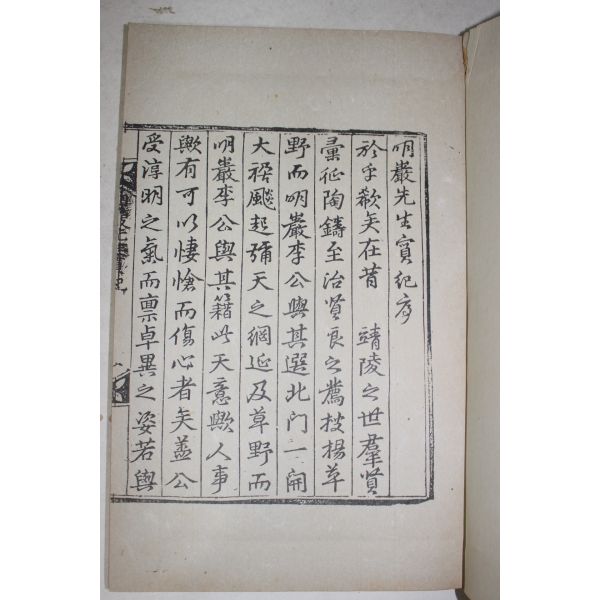 明巖先生實紀序
於乎欷矣在昔 靖陵之世羣賢
彙征陶鑄至治賢良之薦披揚草
野而明巖李公與其選北門一開
大禍颷起彌天之網延及草野而
明巖李公與其籍此天意歟人事
歟有可以悽愴而傷心者矣盖公
受淳明之氣而禀卓異之姿若與